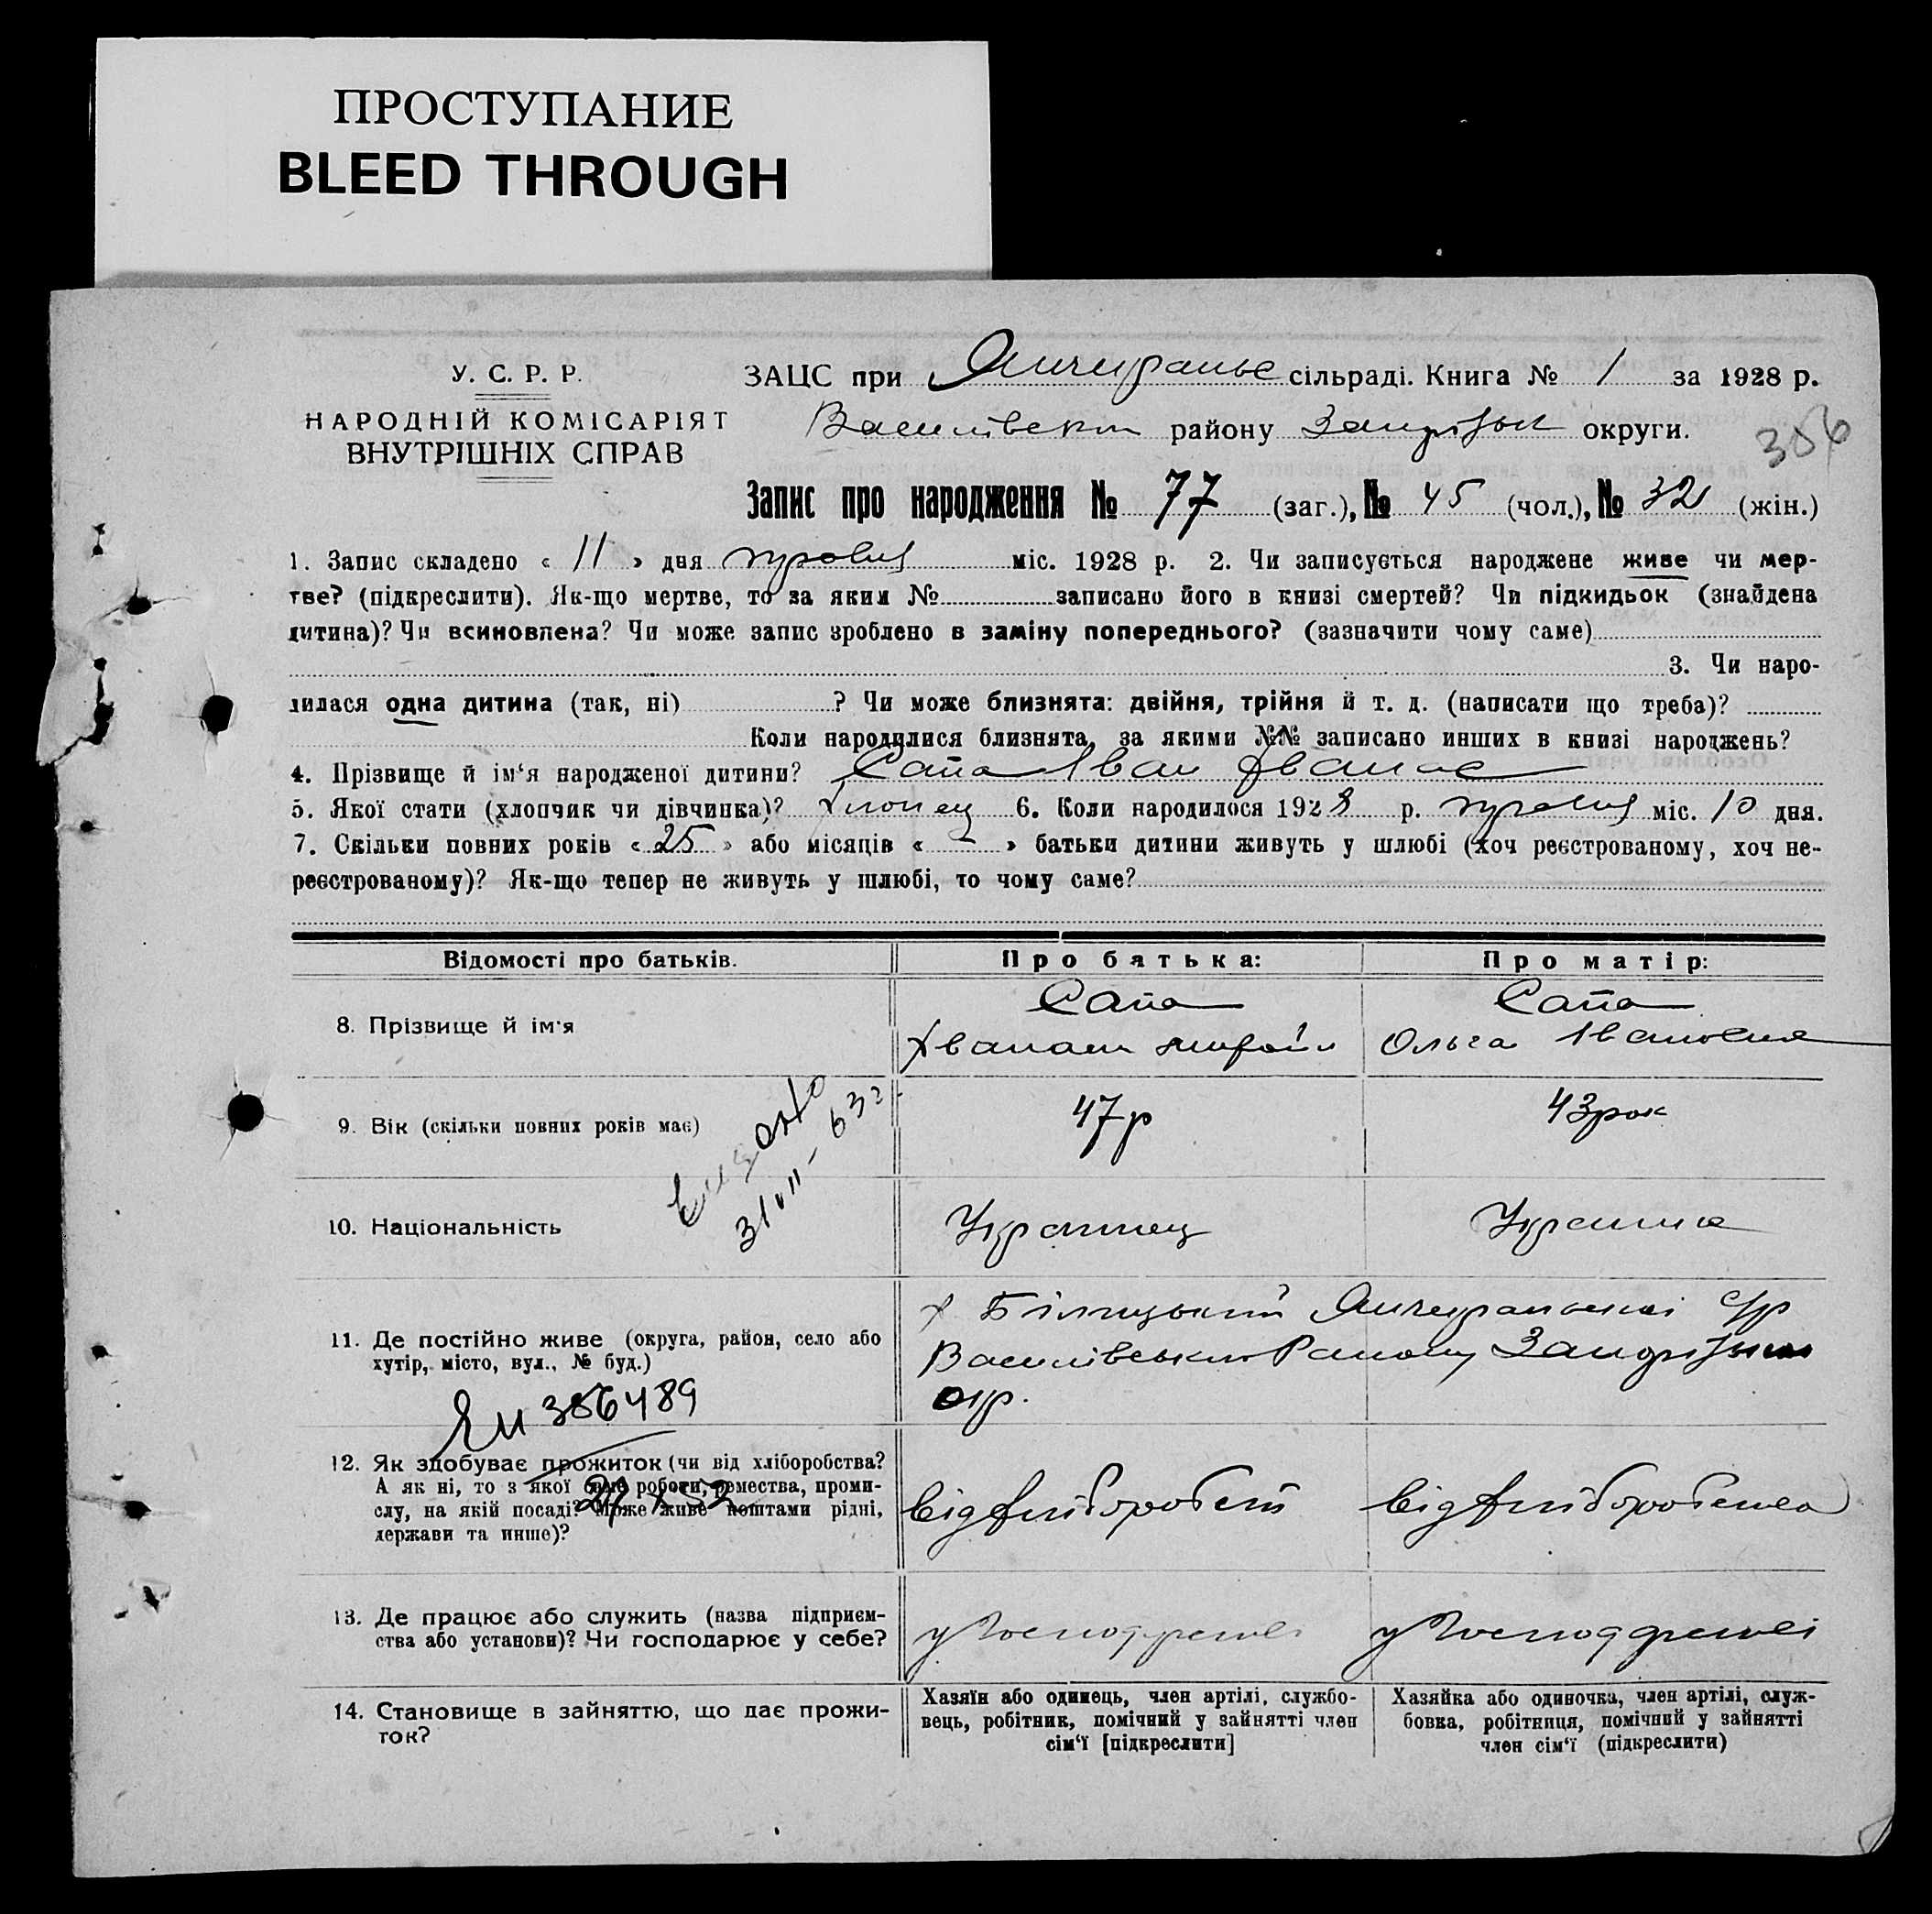 ПРОСТУПАНИЕ
BLEED THROUGH
У. С. Р. Р.
НАРОДНІЙ КОМІСАРІЯТ
ВНУТРІШНІХ СПРАВ
ЗАЦС при сільраді. Книга № 1 за 1928 р.
Василівськ району округи.
306
Запис про народження № 77 (заг.), № 45 (чол.), № 32 (жін.)
1. Запис складено « 11 » дня міс. 1928 р. 2. Чи записується народжене живе чи мер-
тве? (підкреслити). Як-що мертве, то за яким № записано його в книзі смертей? Чи підкидьок (знайдена
дитина)? Чи всиновлена? Чи може запис зроблено в заміну попереднього? (зазначити чому саме)
3. Чи наро-
дилася одна дитина (так, ні) ? Чи може близнята: двійня, трійня й т. д. (написати що треба)?
Коли народилися близнята, за якими №№ записано инших в книзі народжень?
4. Прізвище й ім'я народженої дитини? Сапа Іван
5. Якої стати (хлопчик чи дівчинка)? Хлопец 6. Коли народилося 1928 р. міс. 10 дня.
7. Скільки повних років « 25 » або місяців « - » батьки дитини живуть у шлюбі (хоч реєстрованому, хоч не-
реєстрованому)? Як-що тепер не живуть у шлюбі, то чому саме?
Відомості про батьків. Про батька: Про матір:
8. Прізвище й ім'я
Сапа Сапа
Ольга Івановна
9. Вік (скільки повних років має) 47 р 43 рок
10. Національність Украинец
11. Де постійно живе (округа, район, село або
хутір, місто, вул., № буд.)
Василівського Району
окр.
386489
12. Як здобуває прожиток (чи від хліборобства?
А як ні, то з якої саме роботи, ремества, проми-
слу, на якій посаді? Може живе коштами рідні,
держави та инше)?
від хліборобст від хліборобства
13. Де працює або служить (назва підприєм-
ства або установи)? Чи господарює у себе?
14. Становище в зайняттю, що дає прожи-
ток?
Хазяїн або одинець, член артілі, службо-
вець, робітник, помічний у зайнятті член
сім'ї [підкреслити]
Хазяйка або одиночка, член артілі, служ-
бовка, робітниця, помічний у зайнятті
член сім'ї (підкреслити)